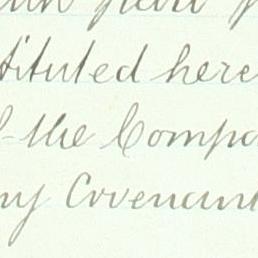 tituted here
the Compa
ny Covenant